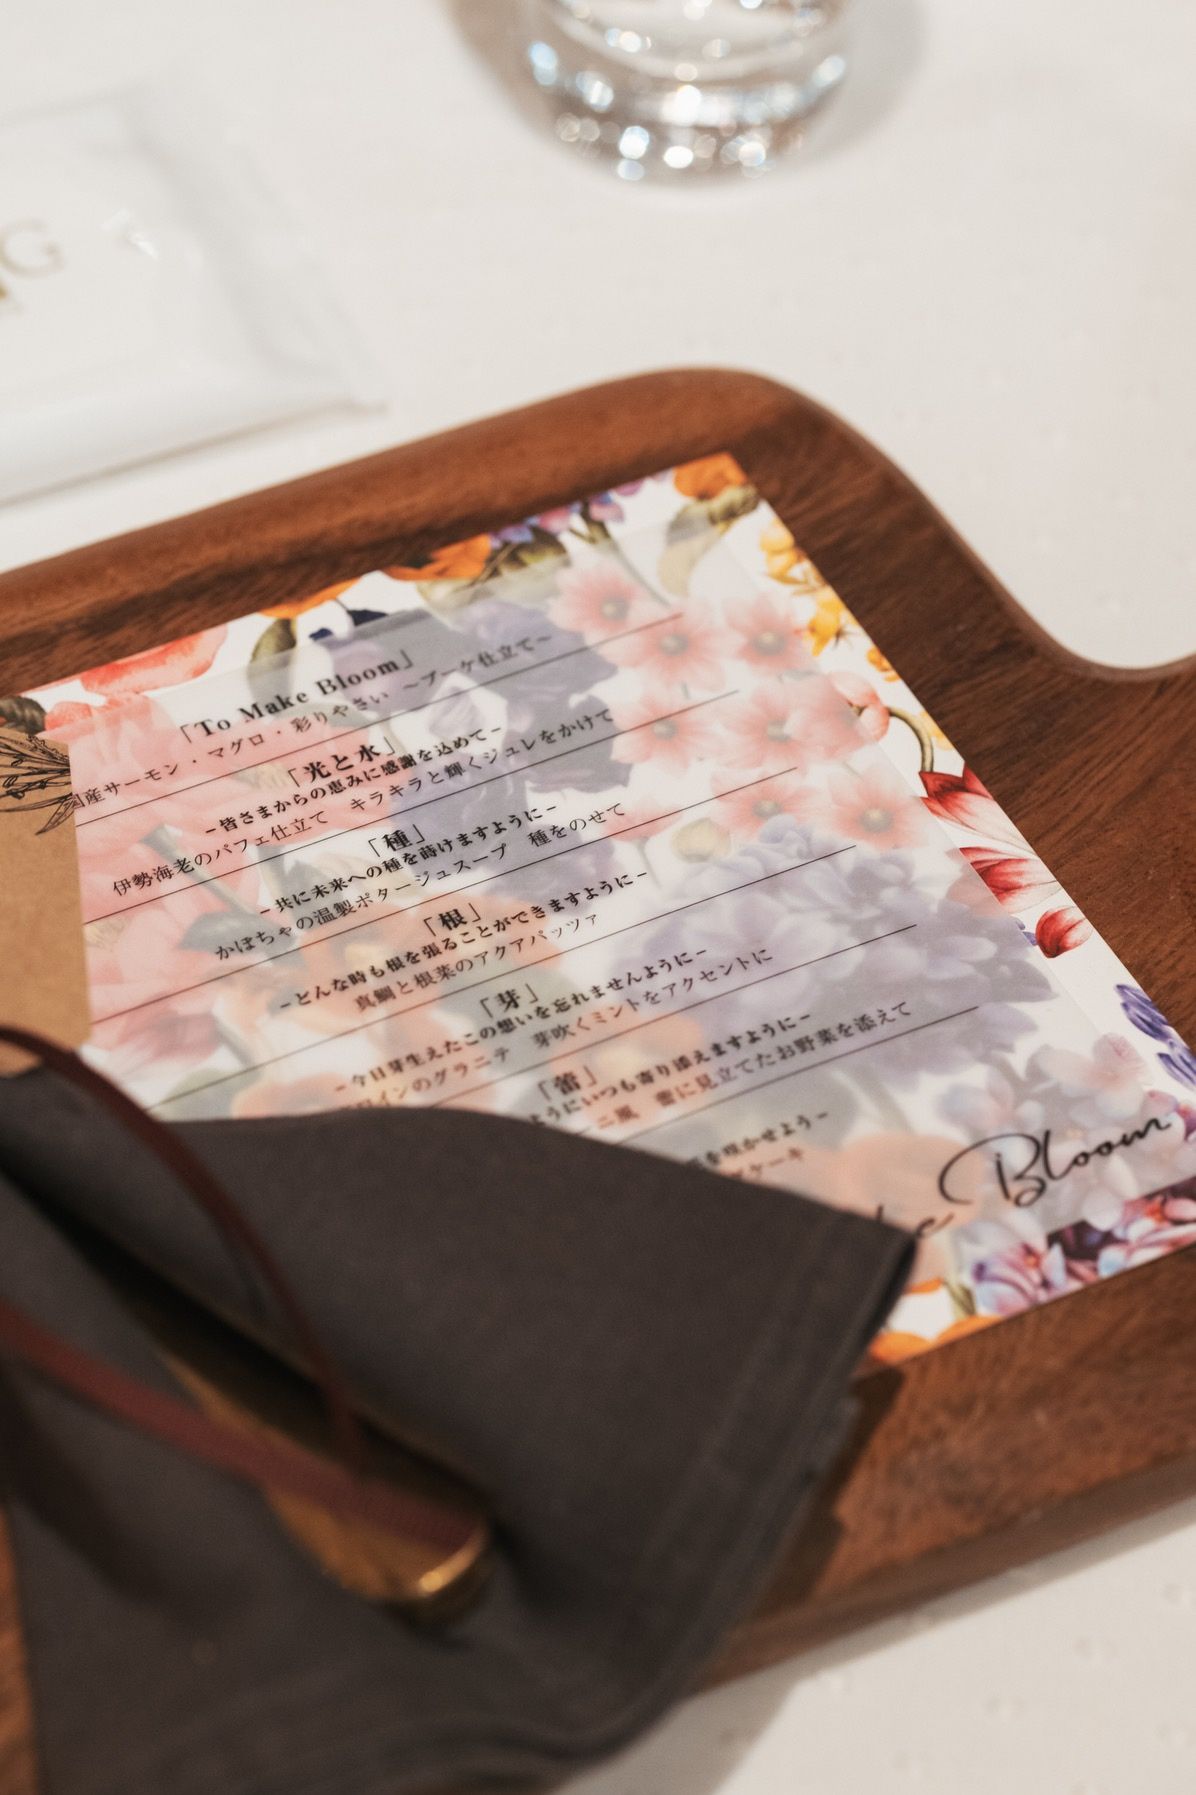 G
「To Make Bloom」
国産サーモン・マグロ・彩りやさい ～ブーケ仕立て～
「光と水」
-皆さまからの恵みに感謝を込めて-
伊勢海老のパフェ仕立て キラキラと輝くジュレをかけて
「種」
-共に未来への種を蒔けますように-
かぼちゃの温製ポタージュスープ 種をのせて
「根」
-どんな時も根を張ることができますように-
真鯛と根菜のアクアパッツァ
「芽」
-今日芽生えたこの想いを忘れませんように-
ワインのグラニテ 芽吹くミントをアクセントに
「蕾」
ようにいつも寄り添えますように-
ニ風 蕾に見立てたお野菜を添えて
を咲かせよう-
ケーキ
Bloom